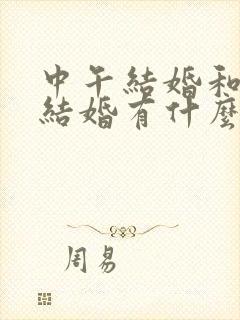 中午結婚和
結婚有什麼
周易